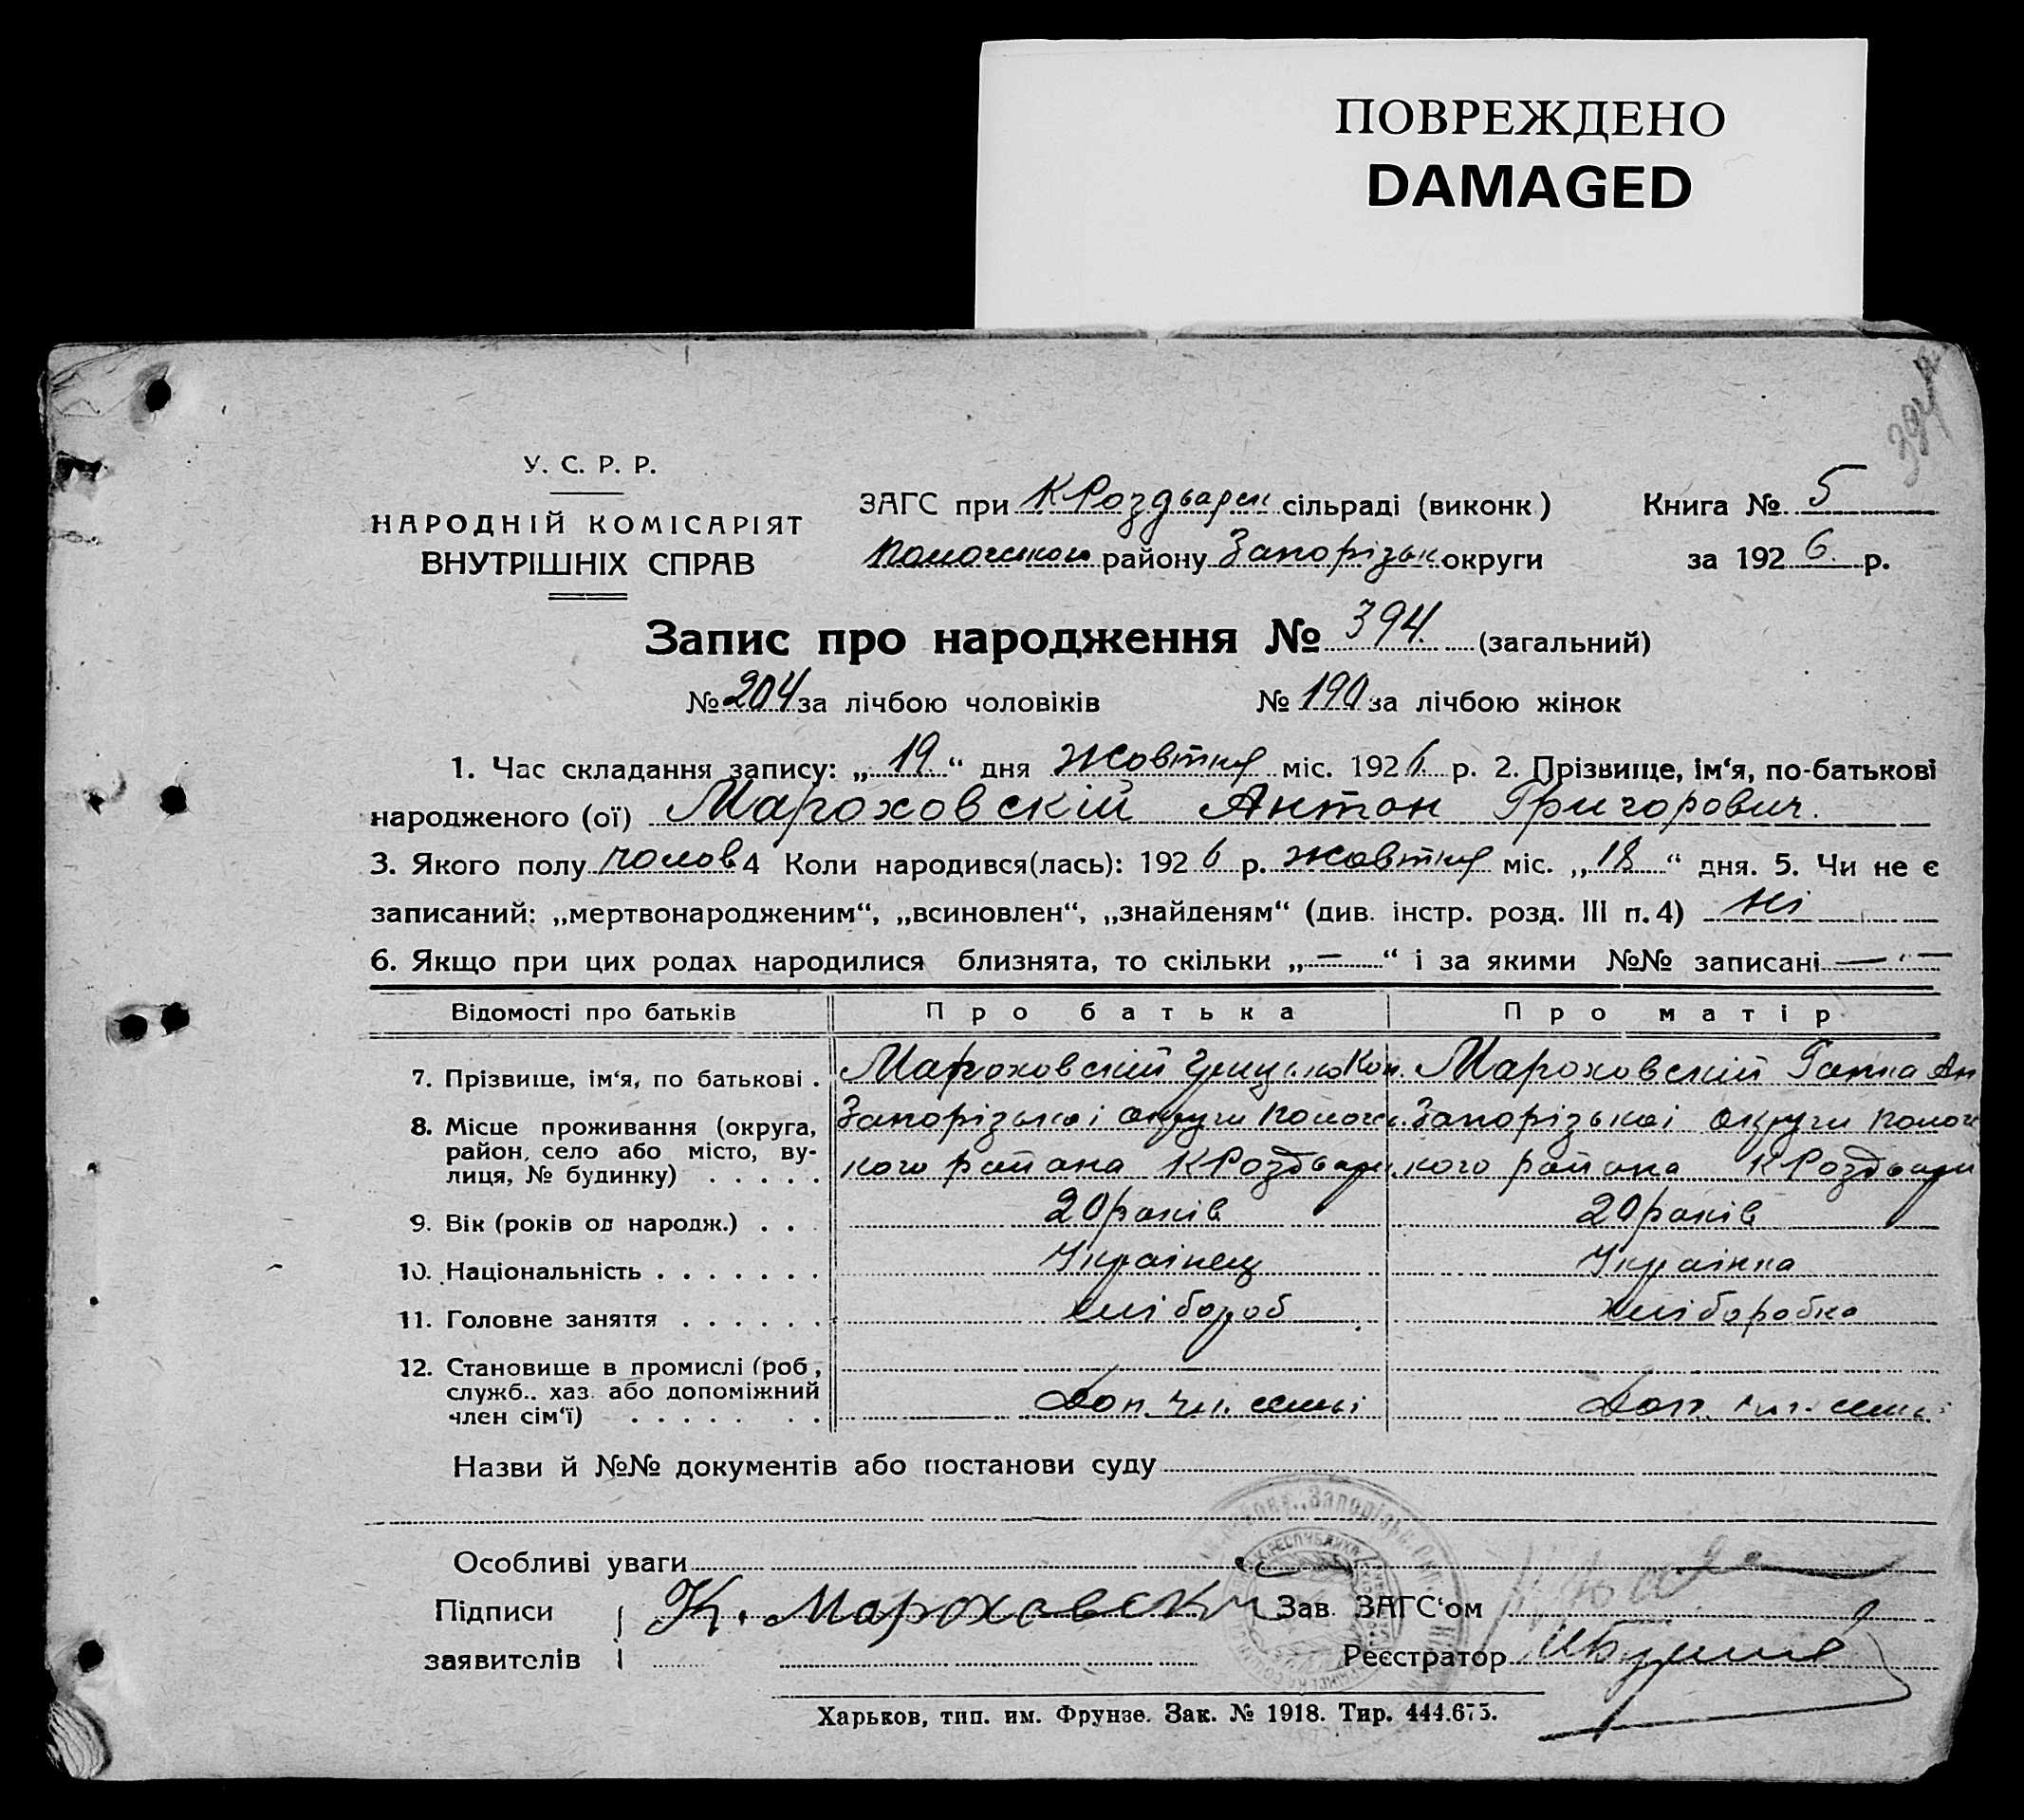 ПОВРЕЖДЕНО
DAMAGED
394
У. С. Р. Р.
НАРОДНІЙ КОМІСАРІЯТ
ВНУТРІШНІХ СПРАВ
ЗАГС при КРоздварск сільраді (виконк)
Пологського району Запорізьк округи
Книга № 5
за 1926 р.
Запис про народження № 394. (загальний)
№ 204 за лічбою чоловіків № 190 за лічбою жінок
1. Час складання запису: „19“ дня Жовтня міс. 1926 р. 2. Прізвище, ім‘я, по-батькові
народженого (ої) Мароховскій Антон Григорович.
3. Якого полу чолов 4 Коли народився(лась): 1926 р. жовтня міс. „18“ дня. 5. Чи не є
записаний: „мертвонародженим“, „всиновлен“, „знайденям“ (див. інстр. розд. III п. 4) Ні
6. Якщо при цих родах народилися близнята, то скільки „—“ і за якими №№ записані — —
Відомості про батьків Про батька Про матір
7. Прізвище, ім‘я, по батькові . Мароховский Грицько Кон. Мароховский Гапка Ан
8. Місце проживання (округа, Запорізькоі округи Пологс Запорізькоі округи Полог
район, село або місто, ву- кого района КРоздвари кого района КРоздвари
лиця, № будинку) . . . . .
9. Вік (років од народж.) . . 20 років 20 років
10. Національність . . . . . . . Украінец Украінка
11. Головне заняття . . . . . . хлібороб хліборобка
12. Становище в промислі (роб,
служб., хаз. або допоміжний Доп. чл. семьі Доп. чл. семьі
член сім‘ї) . . . . . . .
Назви й №№ документів або постанови суду
Особливі уваги
Підписи К. Мароховский Зав. ЗАГС‘ом
заявителів Реєстратор
Харьков, тип. им. Фрунзе. Зак. № 1918. Тир. 444.675.